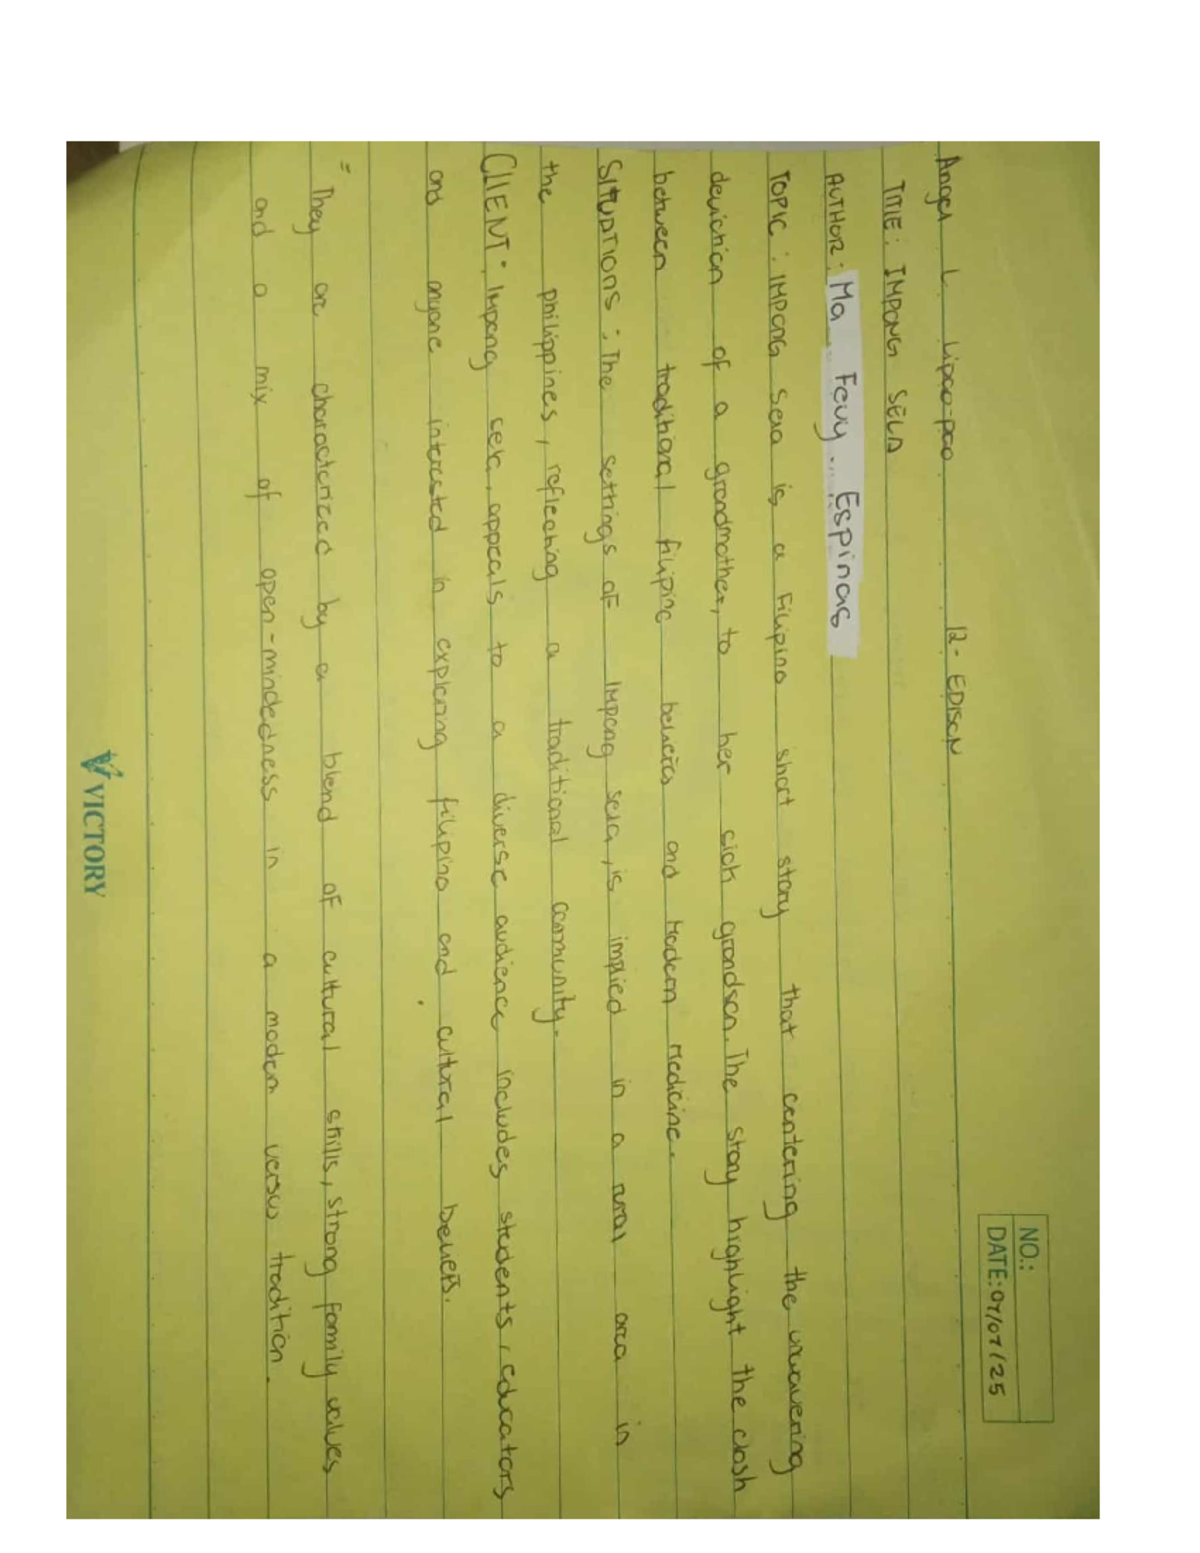 NO.:
DATE: 07/07/25
Angel L. Lipao-pao 12- EDISON
TITLE: IMPONG SELA
AUTHOR: Ma Fevy Espinas
TOPIC: IMPONG Sela is a Filipino short story that centering the unwavering
deviction of a grandmother, to her sick grandson. The story highlight the clash
between traditional filipino beliefs and Modern Medicine.
SITUATIONS: The settings OF IMPONG sela, is implied in a rural area in
the philippines, reflecting a traditional community.
CLIENT: Impong sela, appeals to a diverse audience includes students, educators
and anyone interested in exploring filipino and cultural beliefs.
= They are characterized by a blend OF cultural skills, strong family values
and a mix of open-mindedness in a modern versus tradition.
VICTORY